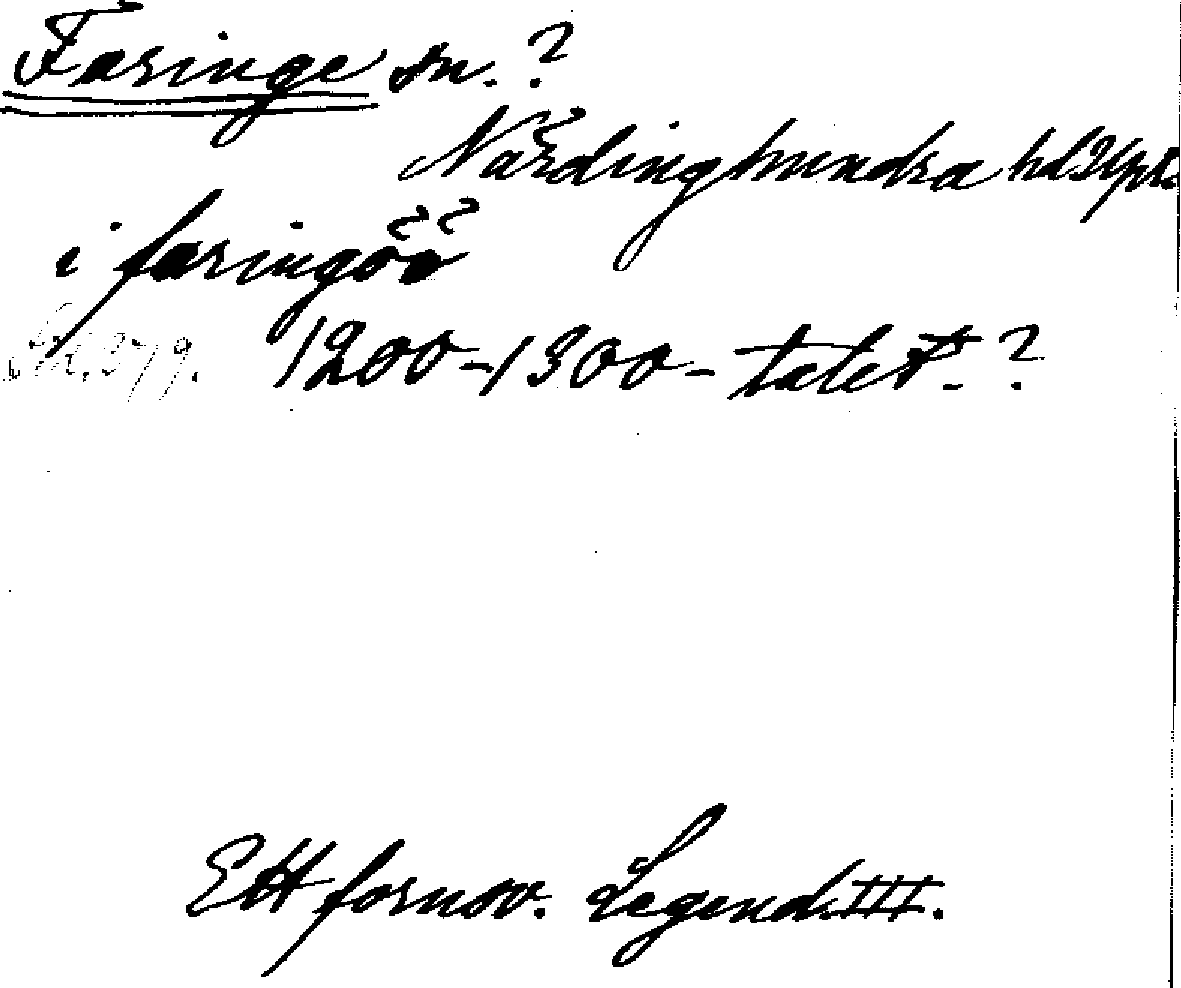 Faringe sn. ?
Närdinghundra hd Upl.
i faringöö
Sid. 379. 1200-1300-talet. ?
Ett fornsv. Legend. III.